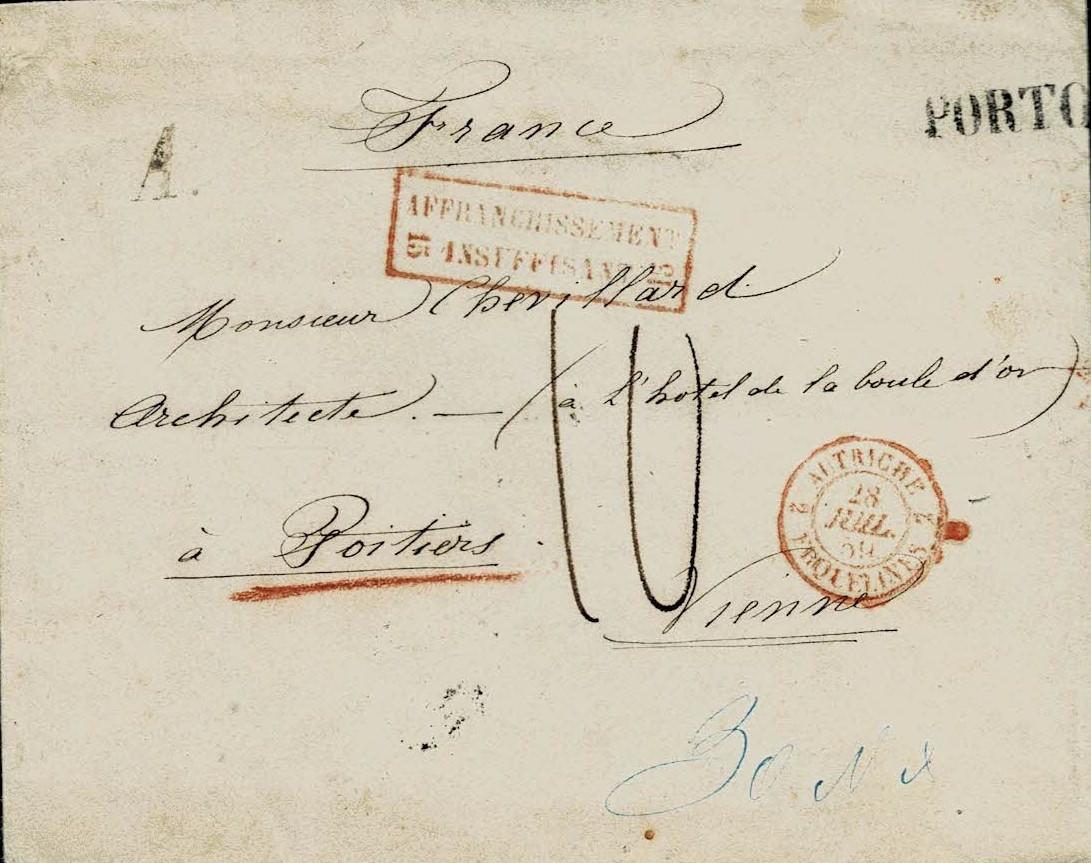 France
PORTO
A.
AFFRANCHISSEMENT
15 INSUFFISANT 15
Monsieur Chevillard
Architecte. — (à l'hotel de la boule d'or)
à Poitiers.
10
2 AUTRICHE 2
28
JUIL.
59
Vienne